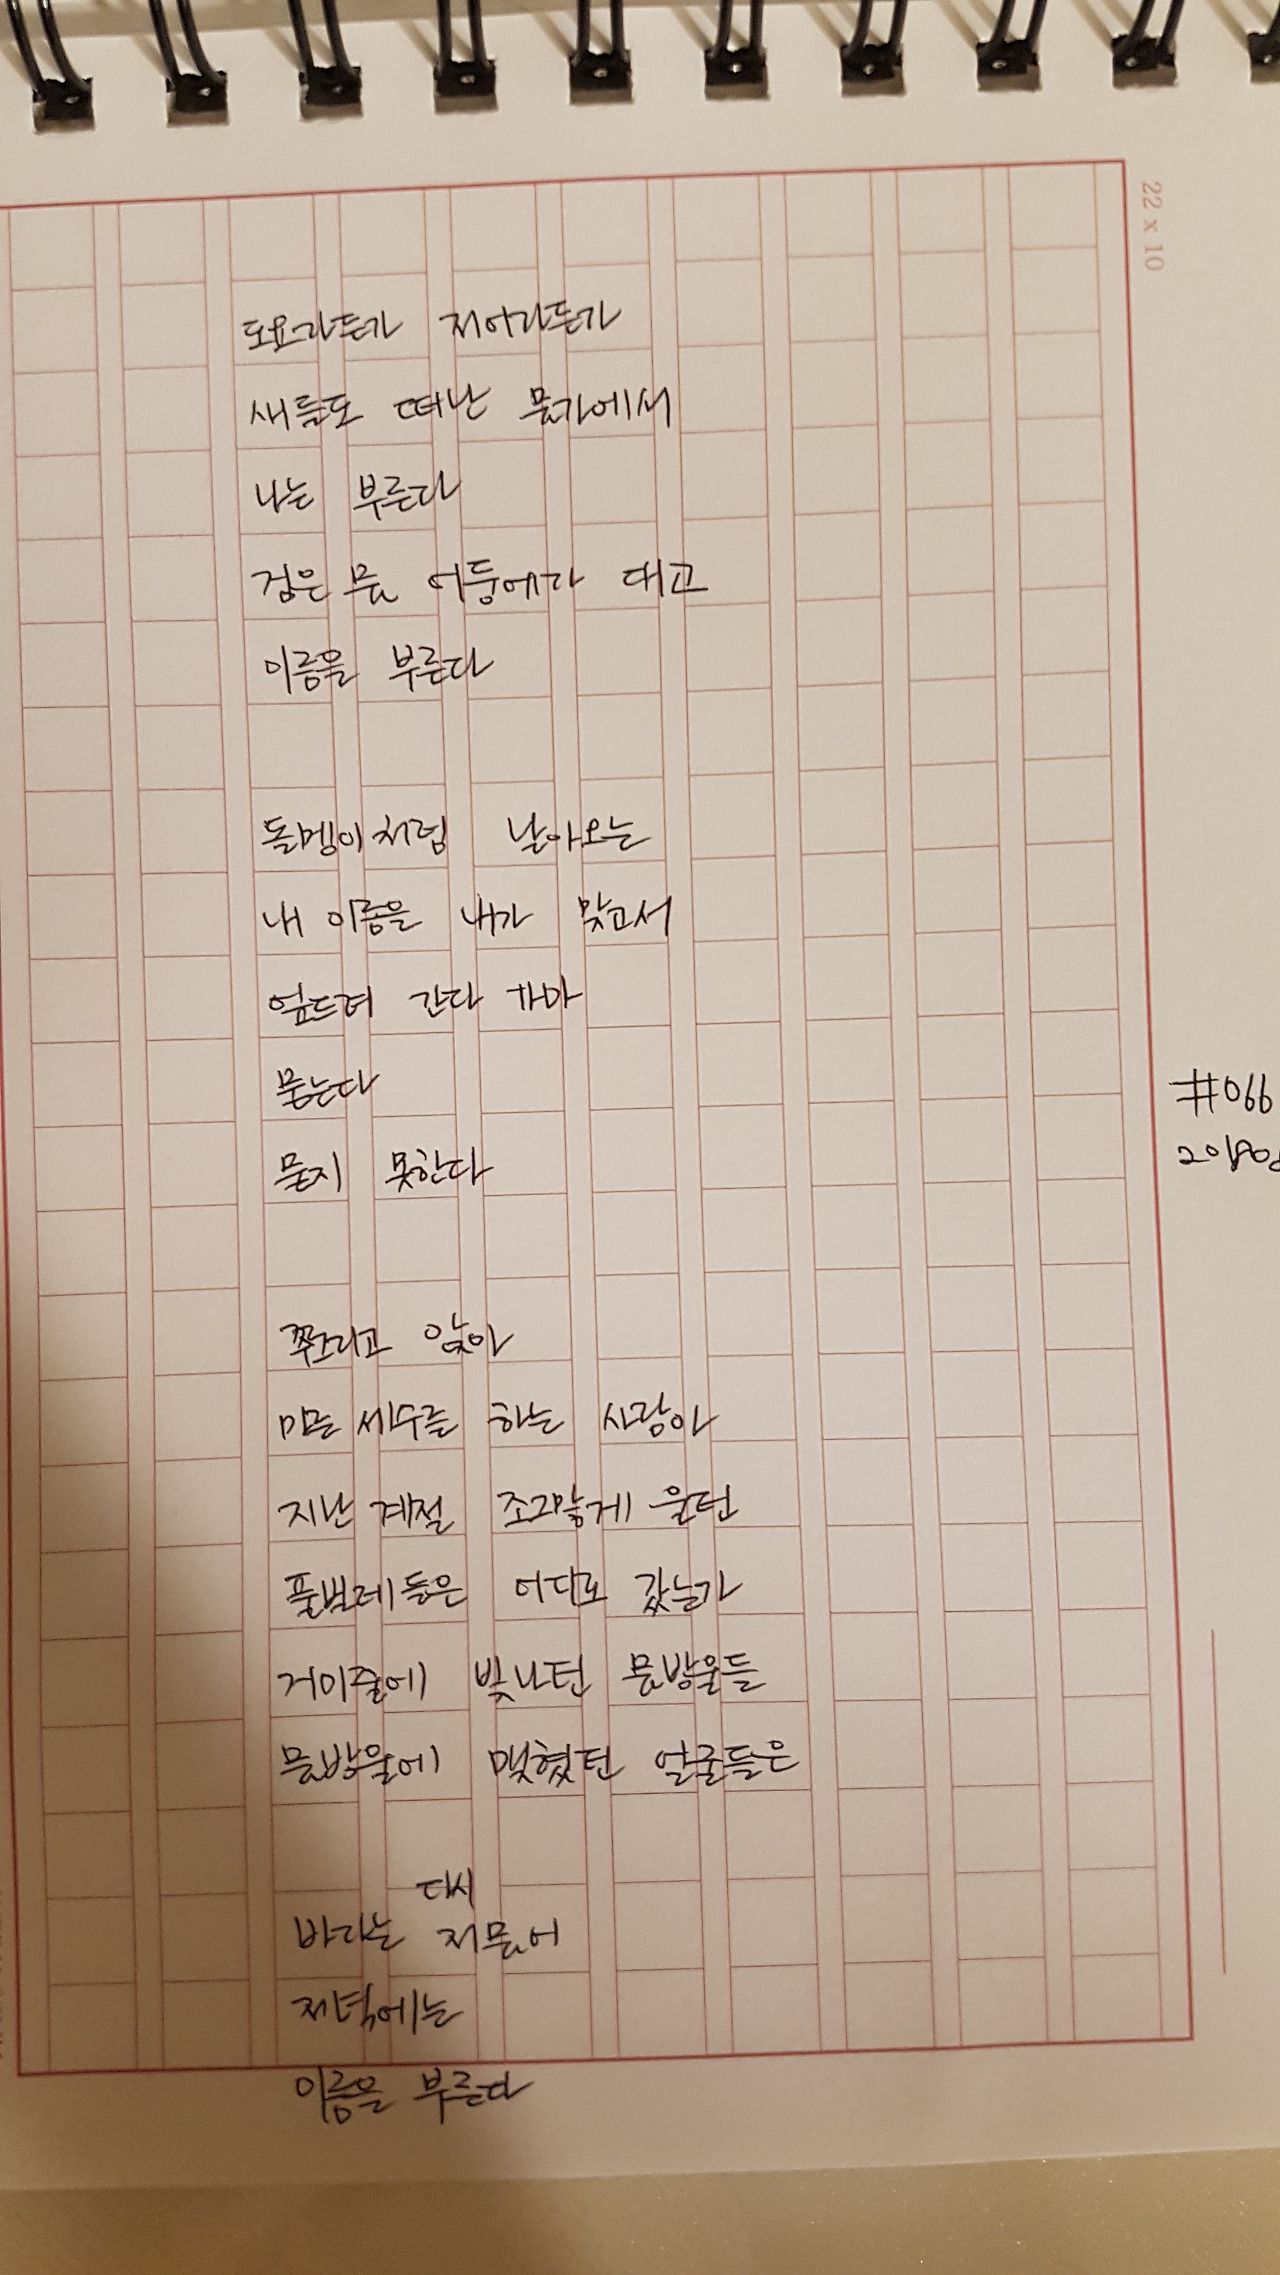 22 x 10
도요라든가 저어라든가
새들도 떠난 물가에서
나는 부른다
검은 물 어둠에다 대고
이름을 부른다
돌멩이처럼 날아오는
내 이름을 내가 맞고서
엎드려 간다 가마
묻는다
묻지 못한다
쭈그리고 앉아
마른 세수를 하는 사람아
지난 계절 조그맣게 울던
풀벌레들은 어디로 갔는가
거미줄에 빛나던 물방울들
물방울에 맺혔던 얼굴들은
바다는 다시 저물어
저녁에는
이름을 부른다
#066